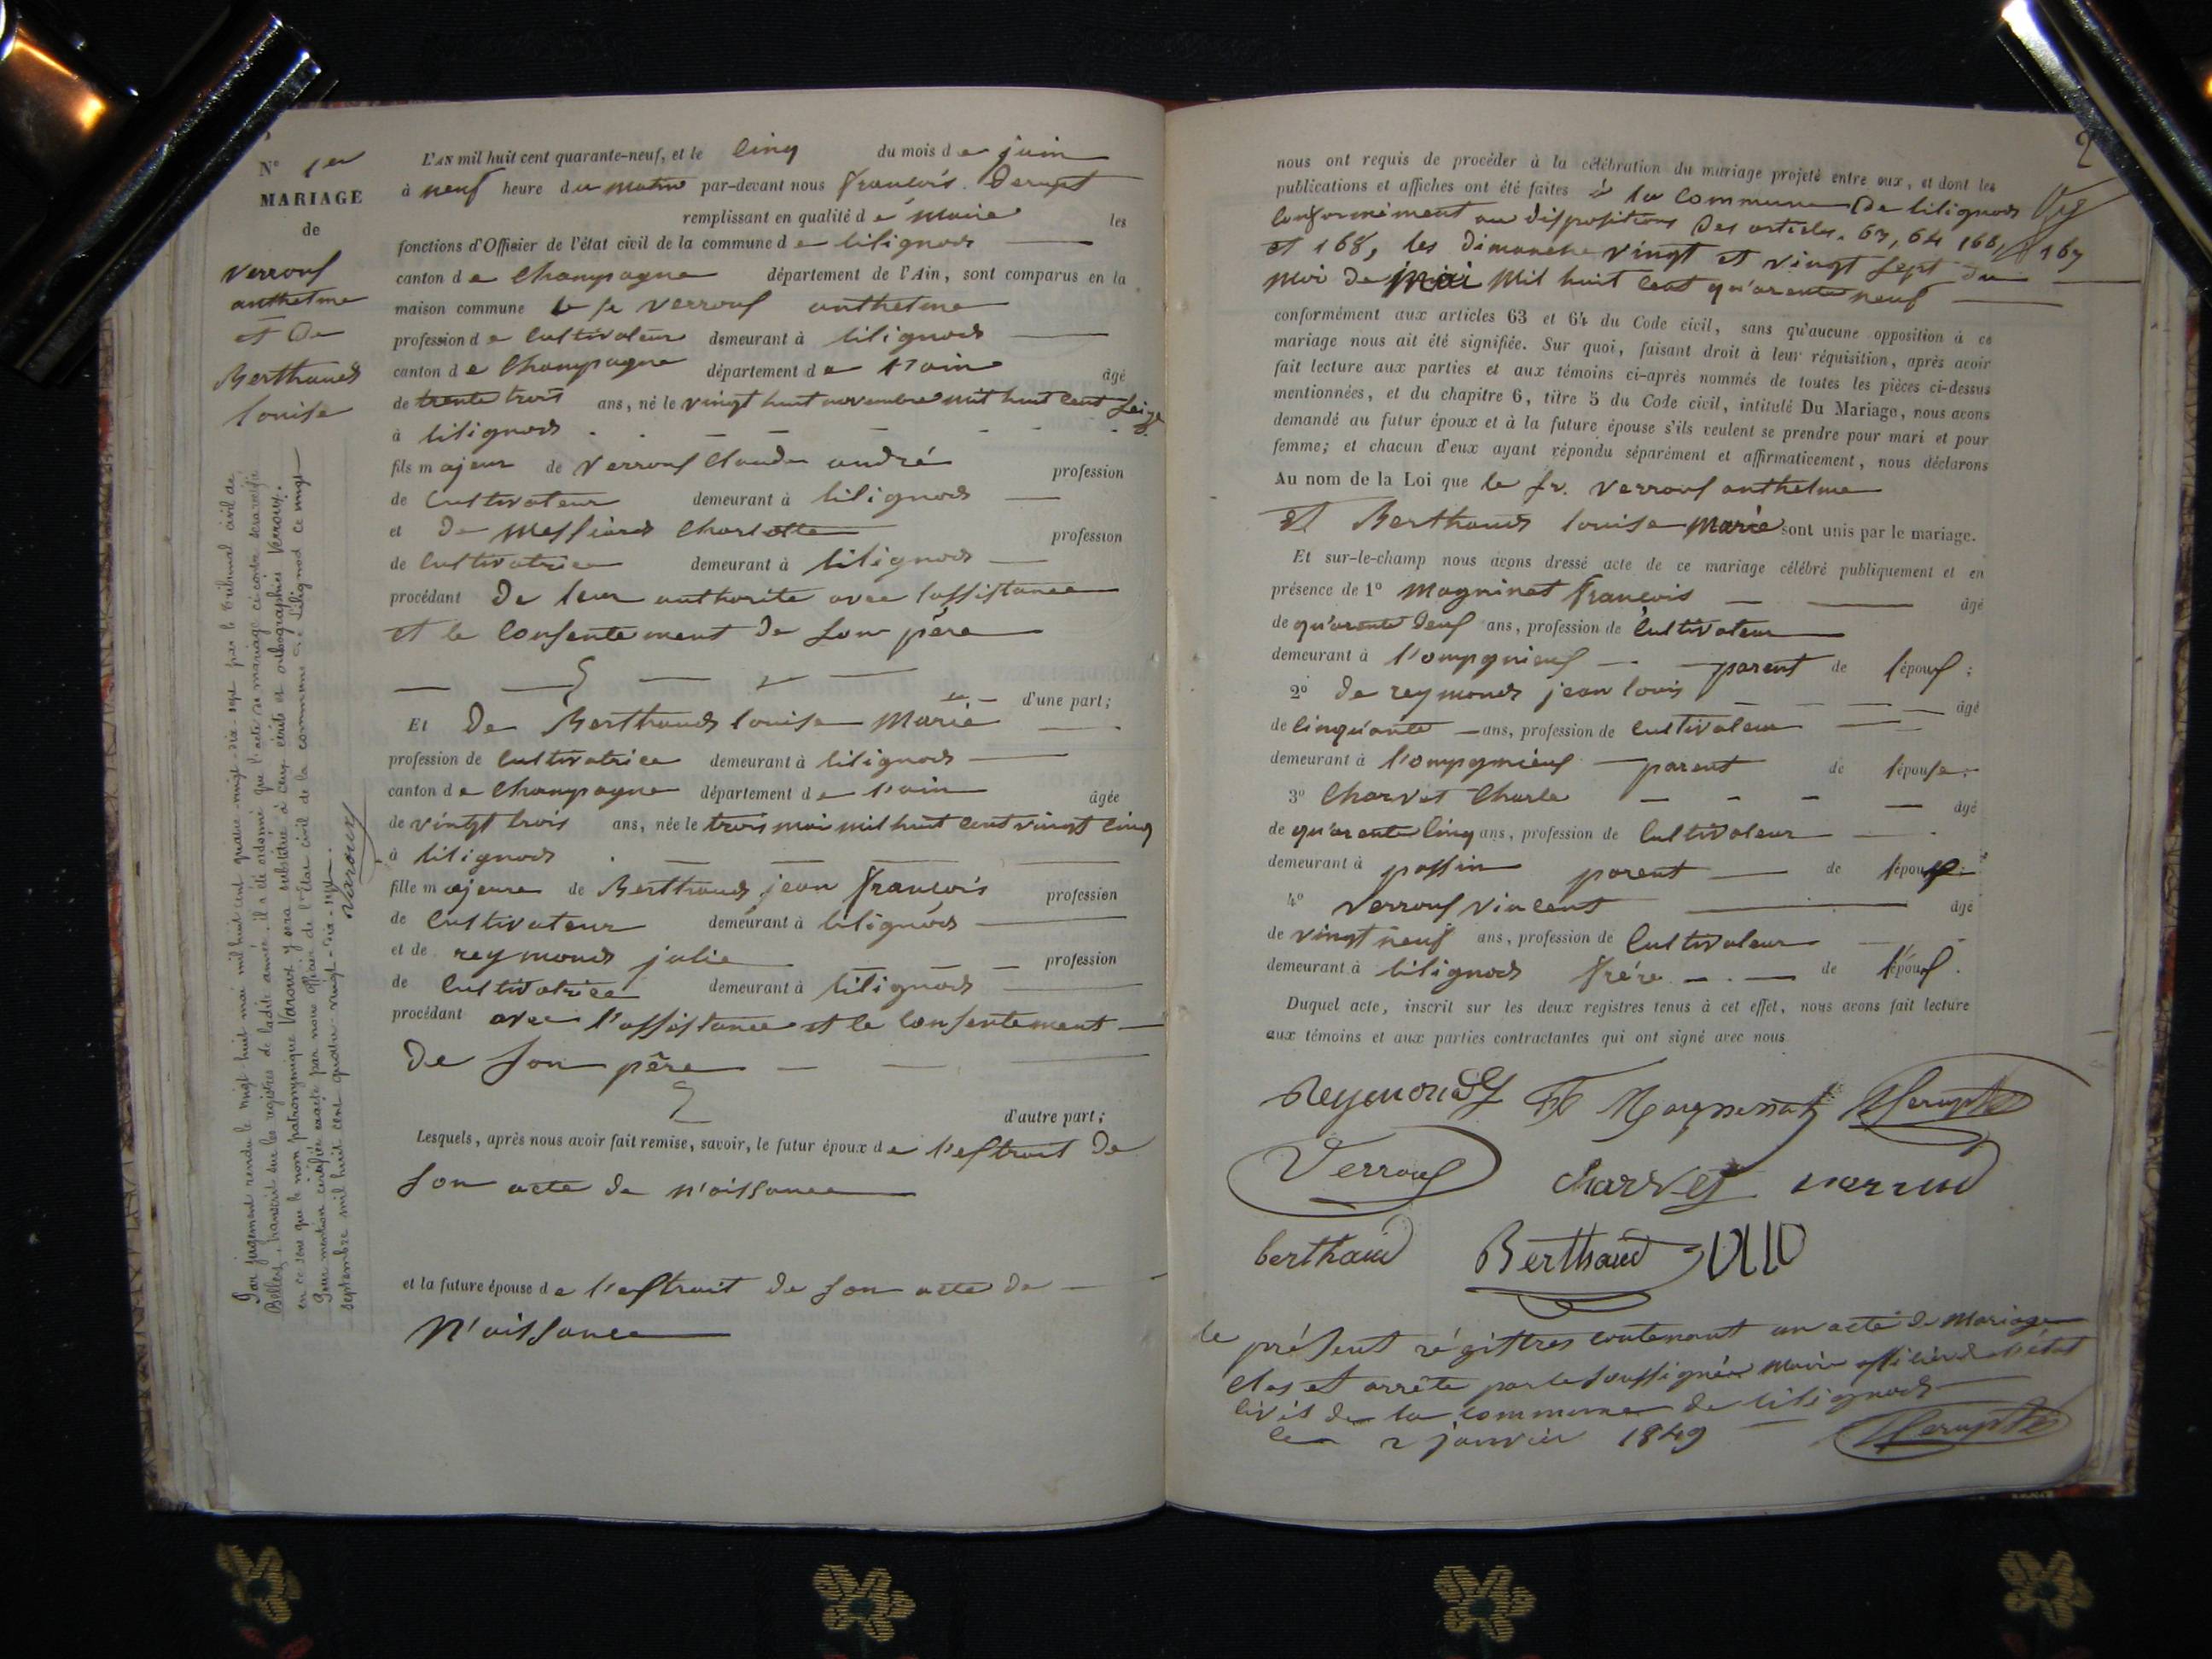 N° 1er
MARIAGE
de
verrouf
anthelme
et De
Berthaud
louise
Par jugement rendu le vingt-huit mai mil huit cent quatre-vingt-dix-sept par le tribunal civil de
Belley, transcrit sur les registres de ladite année, il a été ordonné que l'acte de mariage ci-contre sera rectifié
en ce sens que le nom patronymique Varoux y sera substitué à ceux écrits et orthographiés Verroux.
Pour mention certifiée exacte par nous officier de l'état civil de la commune de Lilignod ce vingt
septembre mil huit cent quatre-vingt-dix-sept.
Varoux
L'AN mil huit cent quarante-neuf, et le cinq du mois de juin
à neuf heure du matin par-devant nous françois Derupt
remplissant en qualité de maire les
fonctions d'Officier de l'état civil de la commune de lilignod
canton de Champagne département de l'Ain, sont comparus en la
maison commune le sr verrouf anthelme
profession de cultivateur demeurant à lilignod
canton de Champagne département de l'ain âgé
de trente trois ans, né le vingt huit novembre mil huit cent seize
à lilignod
fils majeur de verrouf Claude andré profession
de cultivateur demeurant à lilignod
et de messiard Charlotte profession
de cultivatrice demeurant à lilignod
procédant De leur authorite avec l'assistance
et le Consentement De son père
d'une part;
Et De Berthaud louise Marie
profession de cultivatrice demeurant à lilignod
canton de Champagne département de l'ain âgée
de vingt trois ans, née le trois mai mil huit cent vingt cinq
à lilignod
fille majeure de Berthaud jean françois profession
de cultivateur demeurant à lilignod
et de reymond julie profession
de cultivatrice demeurant à lilignod
procédant avec l'assistance et le consentement
De son père
d'autre part;
Lesquels, après nous avoir fait remise, savoir, le futur époux de l'estrait De
son acte de n'aissance
et la future épouse de l'estrait de son acte de
N'aissance
2
nous ont requis de procéder à la célébration du mariage projeté entre eux, et dont les
publications et affiches ont été faites à la commune De lilignod
conformément au dispositions Des articles. 63, 64 166, 167
et 168, les Dimanche vingt et vingt sept du
moi de mai mil huit cent qu'arante neuf
conformément aux articles 63 et 64 du Code civil, sans qu'aucune opposition à ce
mariage nous ait été signifiée. Sur quoi, faisant droit à leur réquisition, après avoir
fait lecture aux parties et aux témoins ci-après nommés de toutes les pièces ci-dessus
mentionnées, et du chapitre 6, titre 5 du Code civil, intitulé Du Mariage, nous avons
demandé au futur époux et à la future épouse s'ils veulent se prendre pour mari et pour
femme; et chacun d'eux ayant répondu séparément et affirmativement, nous déclarons
Au nom de la Loi que le sr. verrouf anthelme
et Berthaud louise marie sont unis par le mariage.
Et sur-le-champ nous avons dressé acte de ce mariage célébré publiquement et en
présence de 1° Magninat François âgé
de qu'arante deuf ans, profession de cultivateur
demeurant à l'ompgnieuf parent de l'épouf;
2° de reymond jean louis âgé
de cinqu'ante ans, profession de cultivateur
demeurant à l'ompgnieuf parent de l'épouse;
3° Charvet Charle âgé
de qu'arante cinq ans, profession de cultivateur
demeurant à passin parent de l'épouse;
4° verrouf vincent âgé
de vingt neuf ans, profession de cultivateur
demeurant à lilignod frère de l'épouf.
Duquel acte, inscrit sur les deux registres tenus à cet effet, nous avons fait lecture
aux témoins et aux parties contractantes qui ont signé avec nous.
Reymond Magninat Derupt
Verrouf charvet
berthaud Berthaud
le présent régistres contenant un acte de Mariage
clos et arrête par le soussignéz maire officier de l'état
civil de la commune de lilignod
le 2 janvier 1849 Derupt